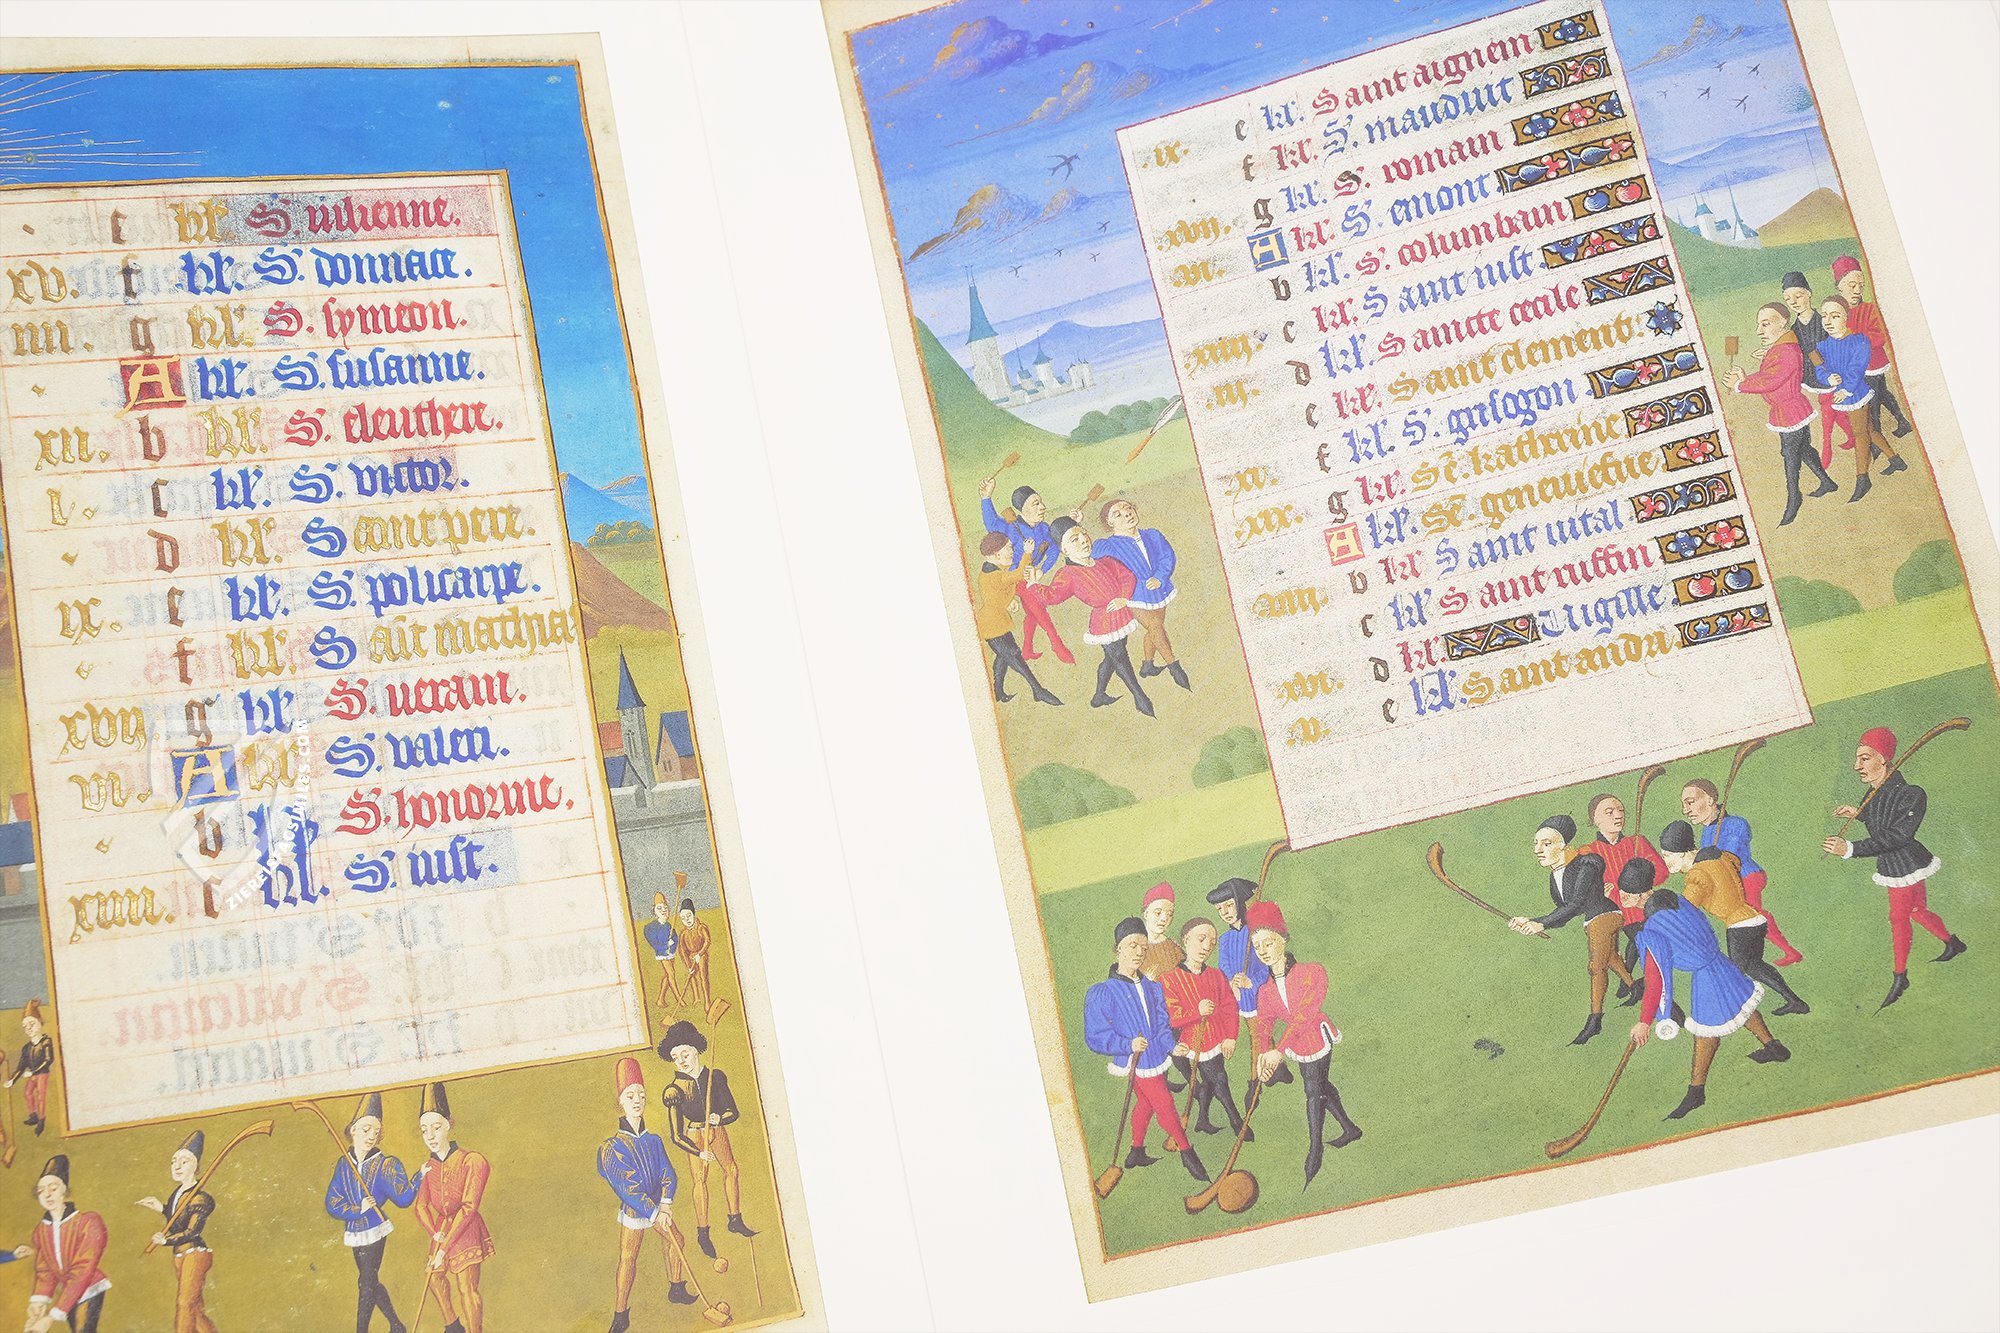 . e kl'. S. iulienne.
xv. f kl'. S. donnace.
iiii. g kl'. S. symeon.
A kl'. S. susanne.
xii. b kl'. S. eleuthere.
i. c kl'. S. victor.
d kl'. Saint pere.
ix. e kl'. S. policarpe.
f kl'. Saīt mathias
xvii. g kl'. S. uerain.
vi. A kl'. S. valeri.
b kl'. S. honorine.
xiiii. c kl'. S. iust.
ZIEREIS FACSIMILES.COM
ix. e kl'. Saint aignem
f kl'. S. mauduit
xvii. g kl'. S. romain
vi. A kl'. S. emont
b kl'. S. columbain
xiiii. c kl'. Saint iust
iii. d kl'. Saincte cecile
e kl'. Saint clement.
xi. f kl'. S. grisogon
xix. g kl'. Sē. katherine
A kl'. Sē. geneuiefue
viii. b kl'. Saint vital
c kl'. Saint ruffin
xvi. d kl'. Vigille
v. e kl'. Saint andri.